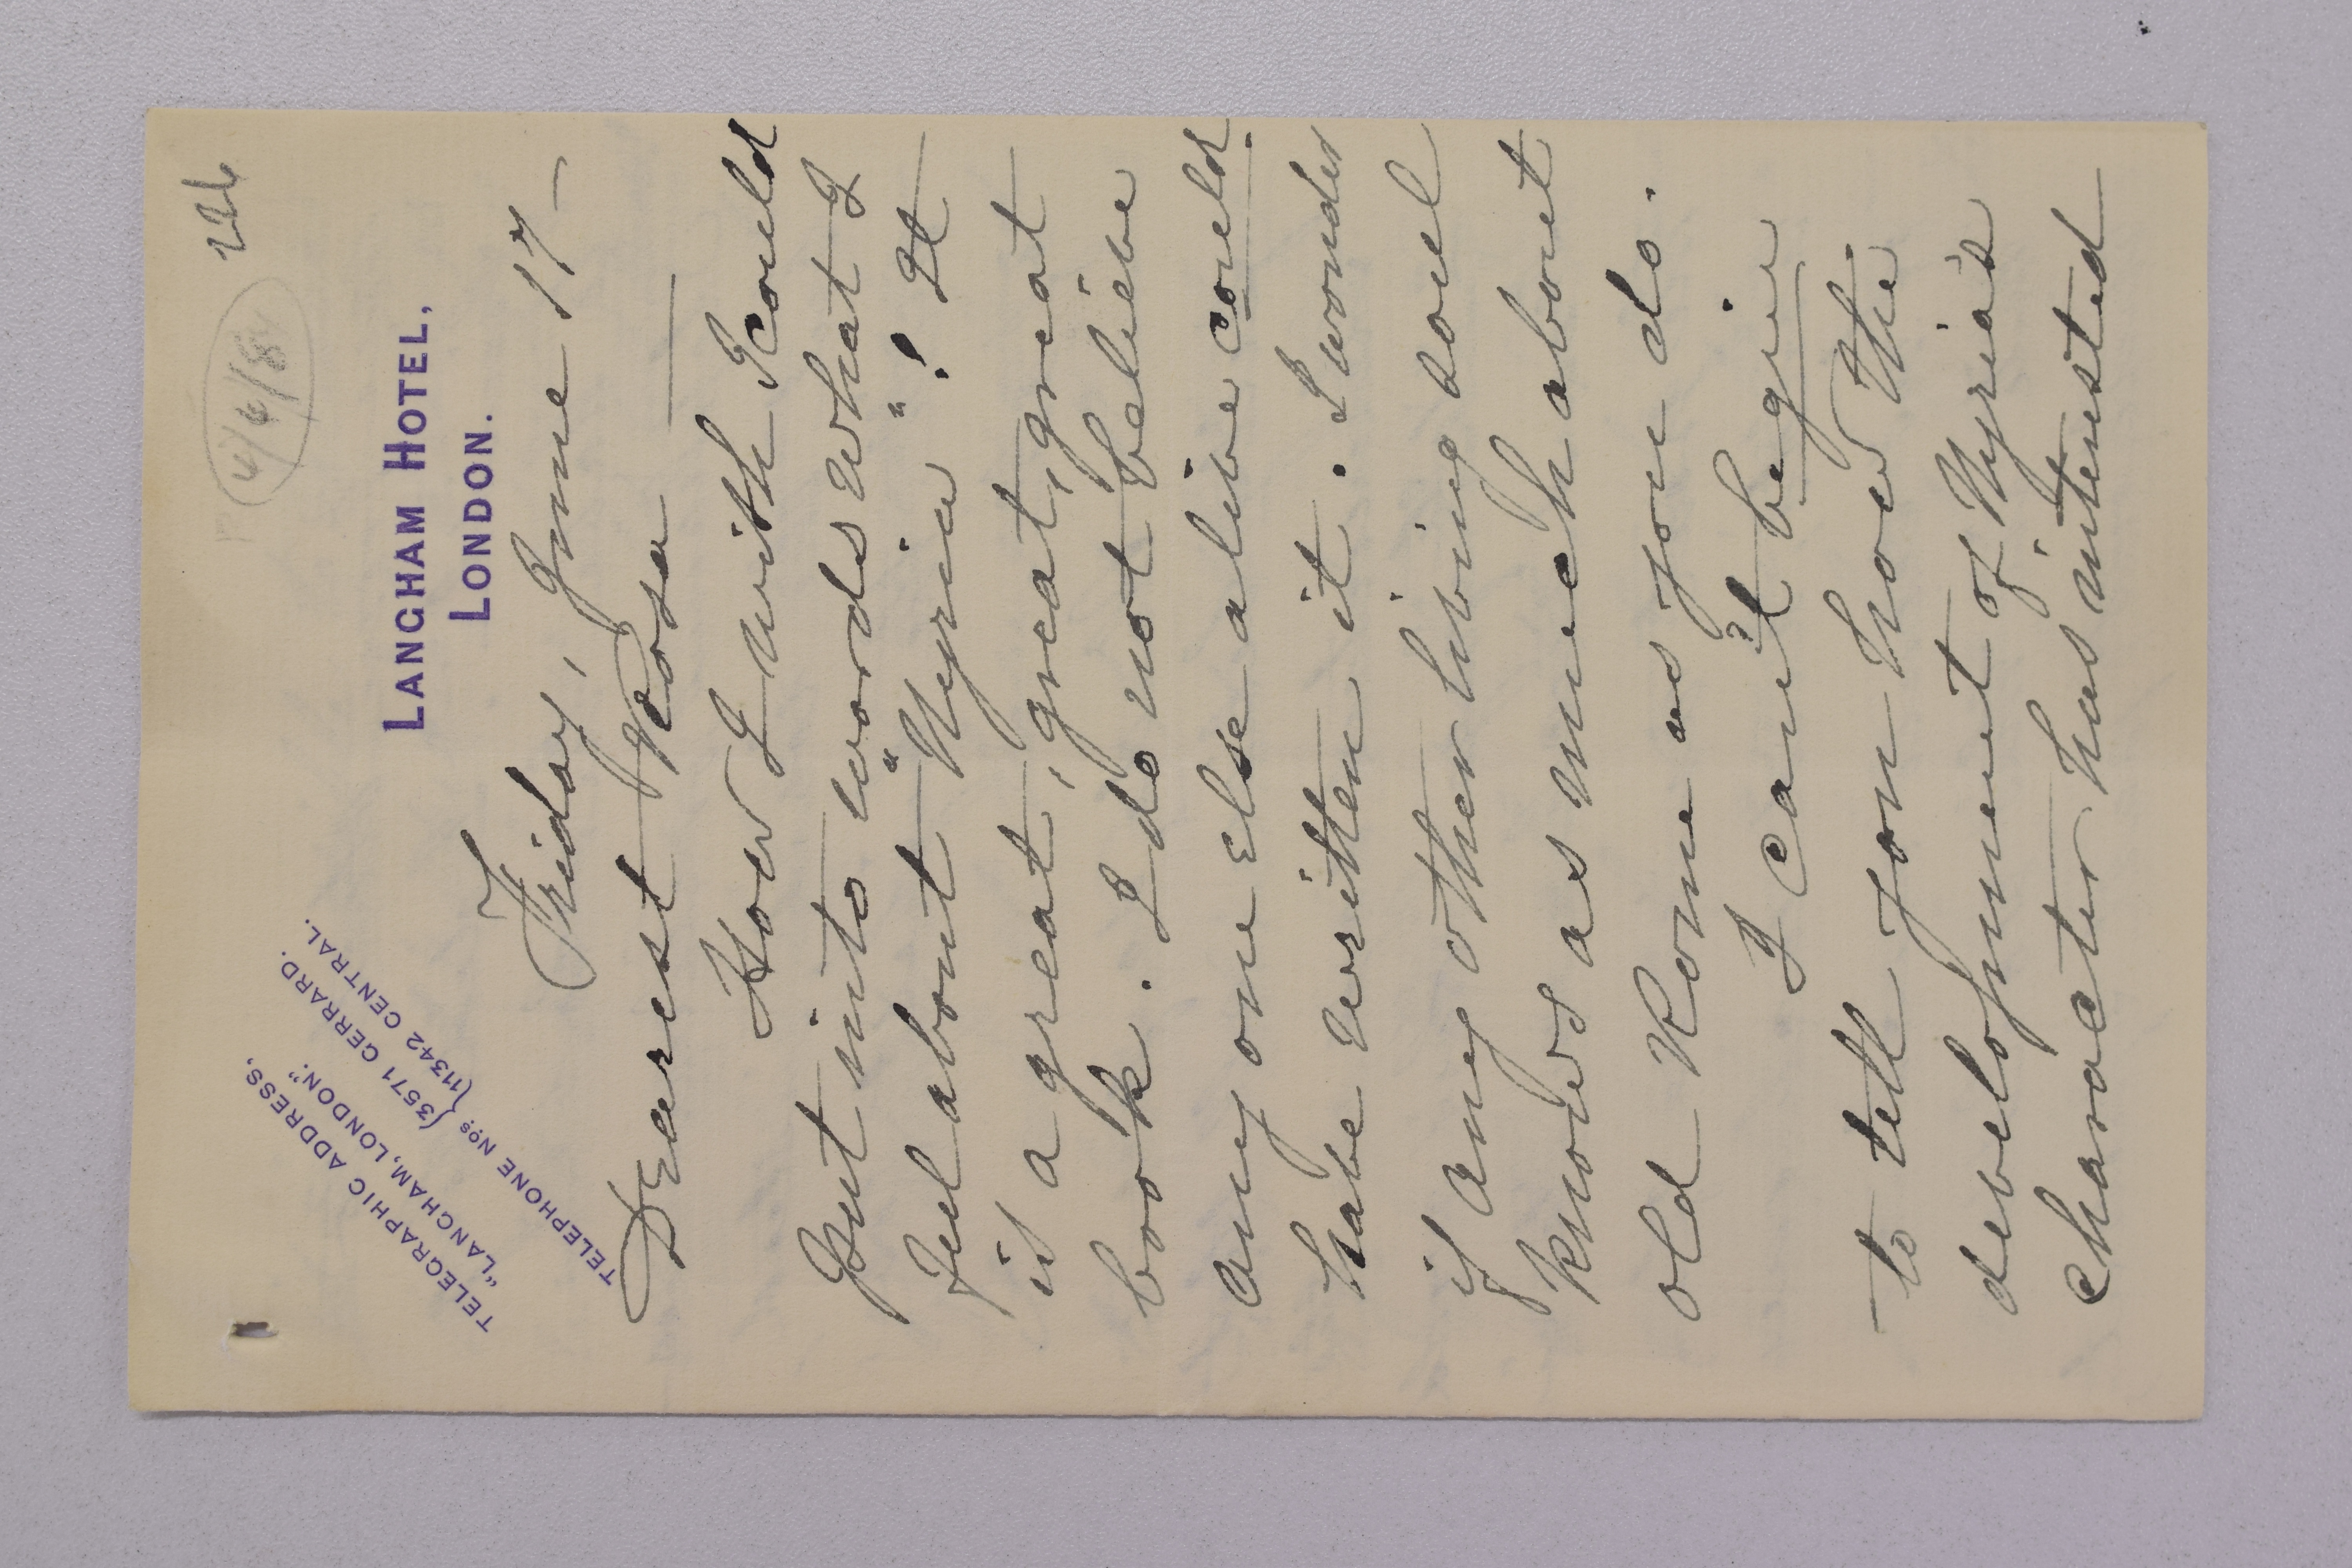 226
4/4/8
TELEGRAPHIC ADDRESS,
"LANGHAM, LONDON."
TELEPHONE Nos { 3571 GERRARD.
{ 11342 CENTRAL.
LANGHAM HOTEL,
LONDON.
Friday, June 17 –
Dearest Rosa —
How I wish I could
put into words what I
feel about "Nyria"! It
is a great, great, great, great
book. I do not believe
any one else alive could
have written it. I wonder
if any other living soul
knows as much about
old Rome as you do.
I can't begin
to tell you how the
development of Nyria's
character has interested